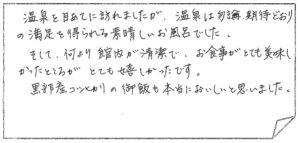 温泉を目あてに訪れましたが、温泉は勿論期待どおり
の満足を得られる素晴しいお風呂でした。
そして、何より館内が清潔で、お食事がとても美味し
かったところがとても嬉しかったです。
黒部産コシヒカリの御飯も本当においしいと思いました。